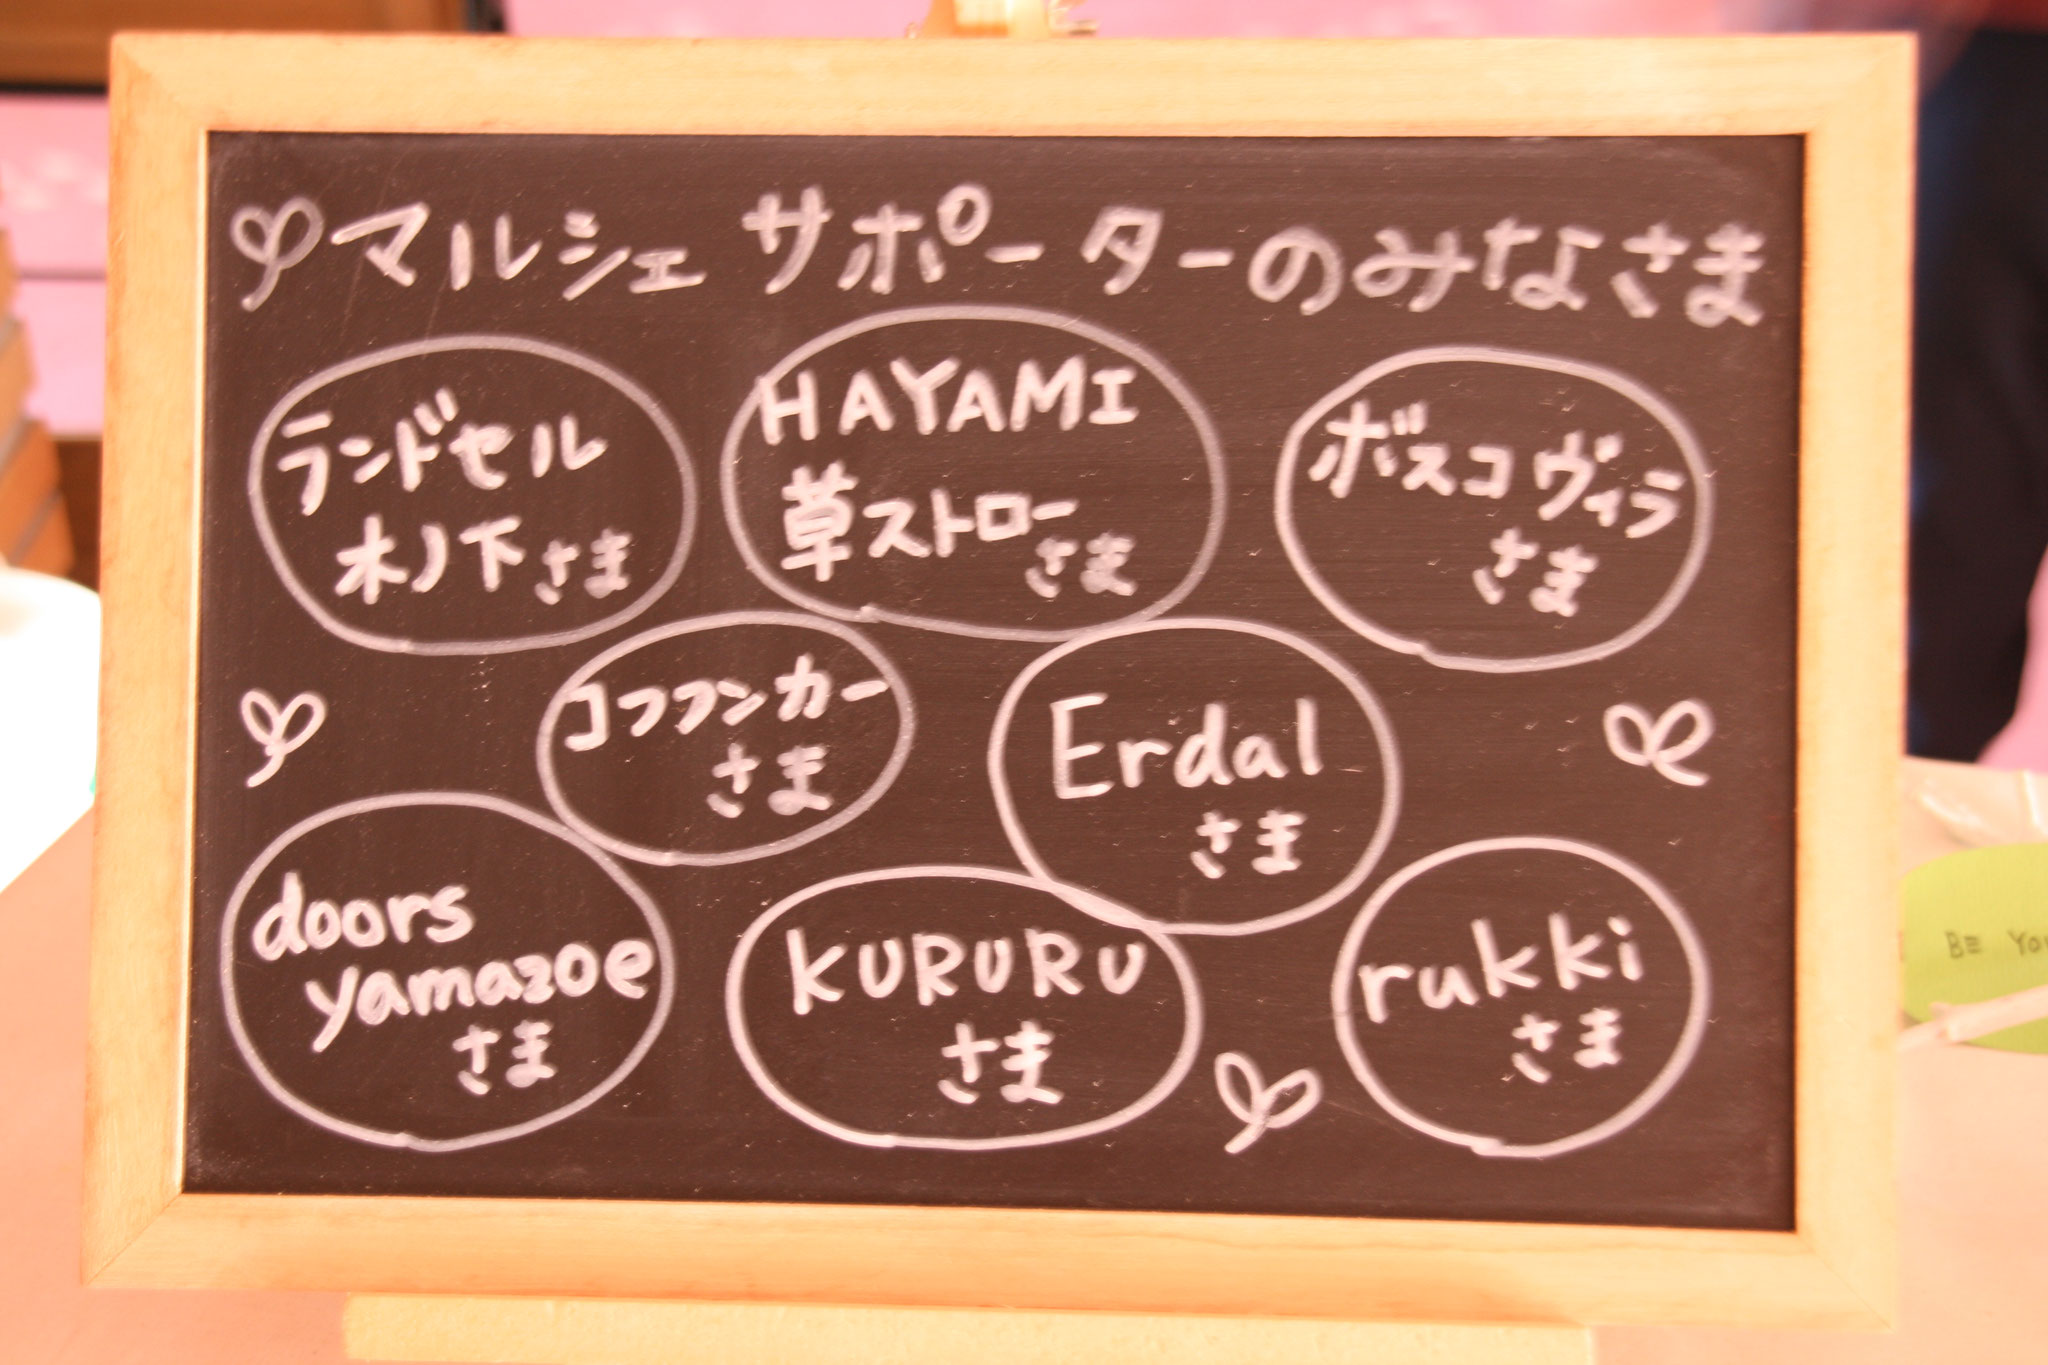 マルシェ サポーターのみなさま
ランドセル
木ノ下さま
HAYAMI
草ストローさま
ボスコヴィラ
さま
コフフンカー
さま
Erdal
さま
doors
yamazoe
さま
KURURU
さま
rukki
さま
BE YOU